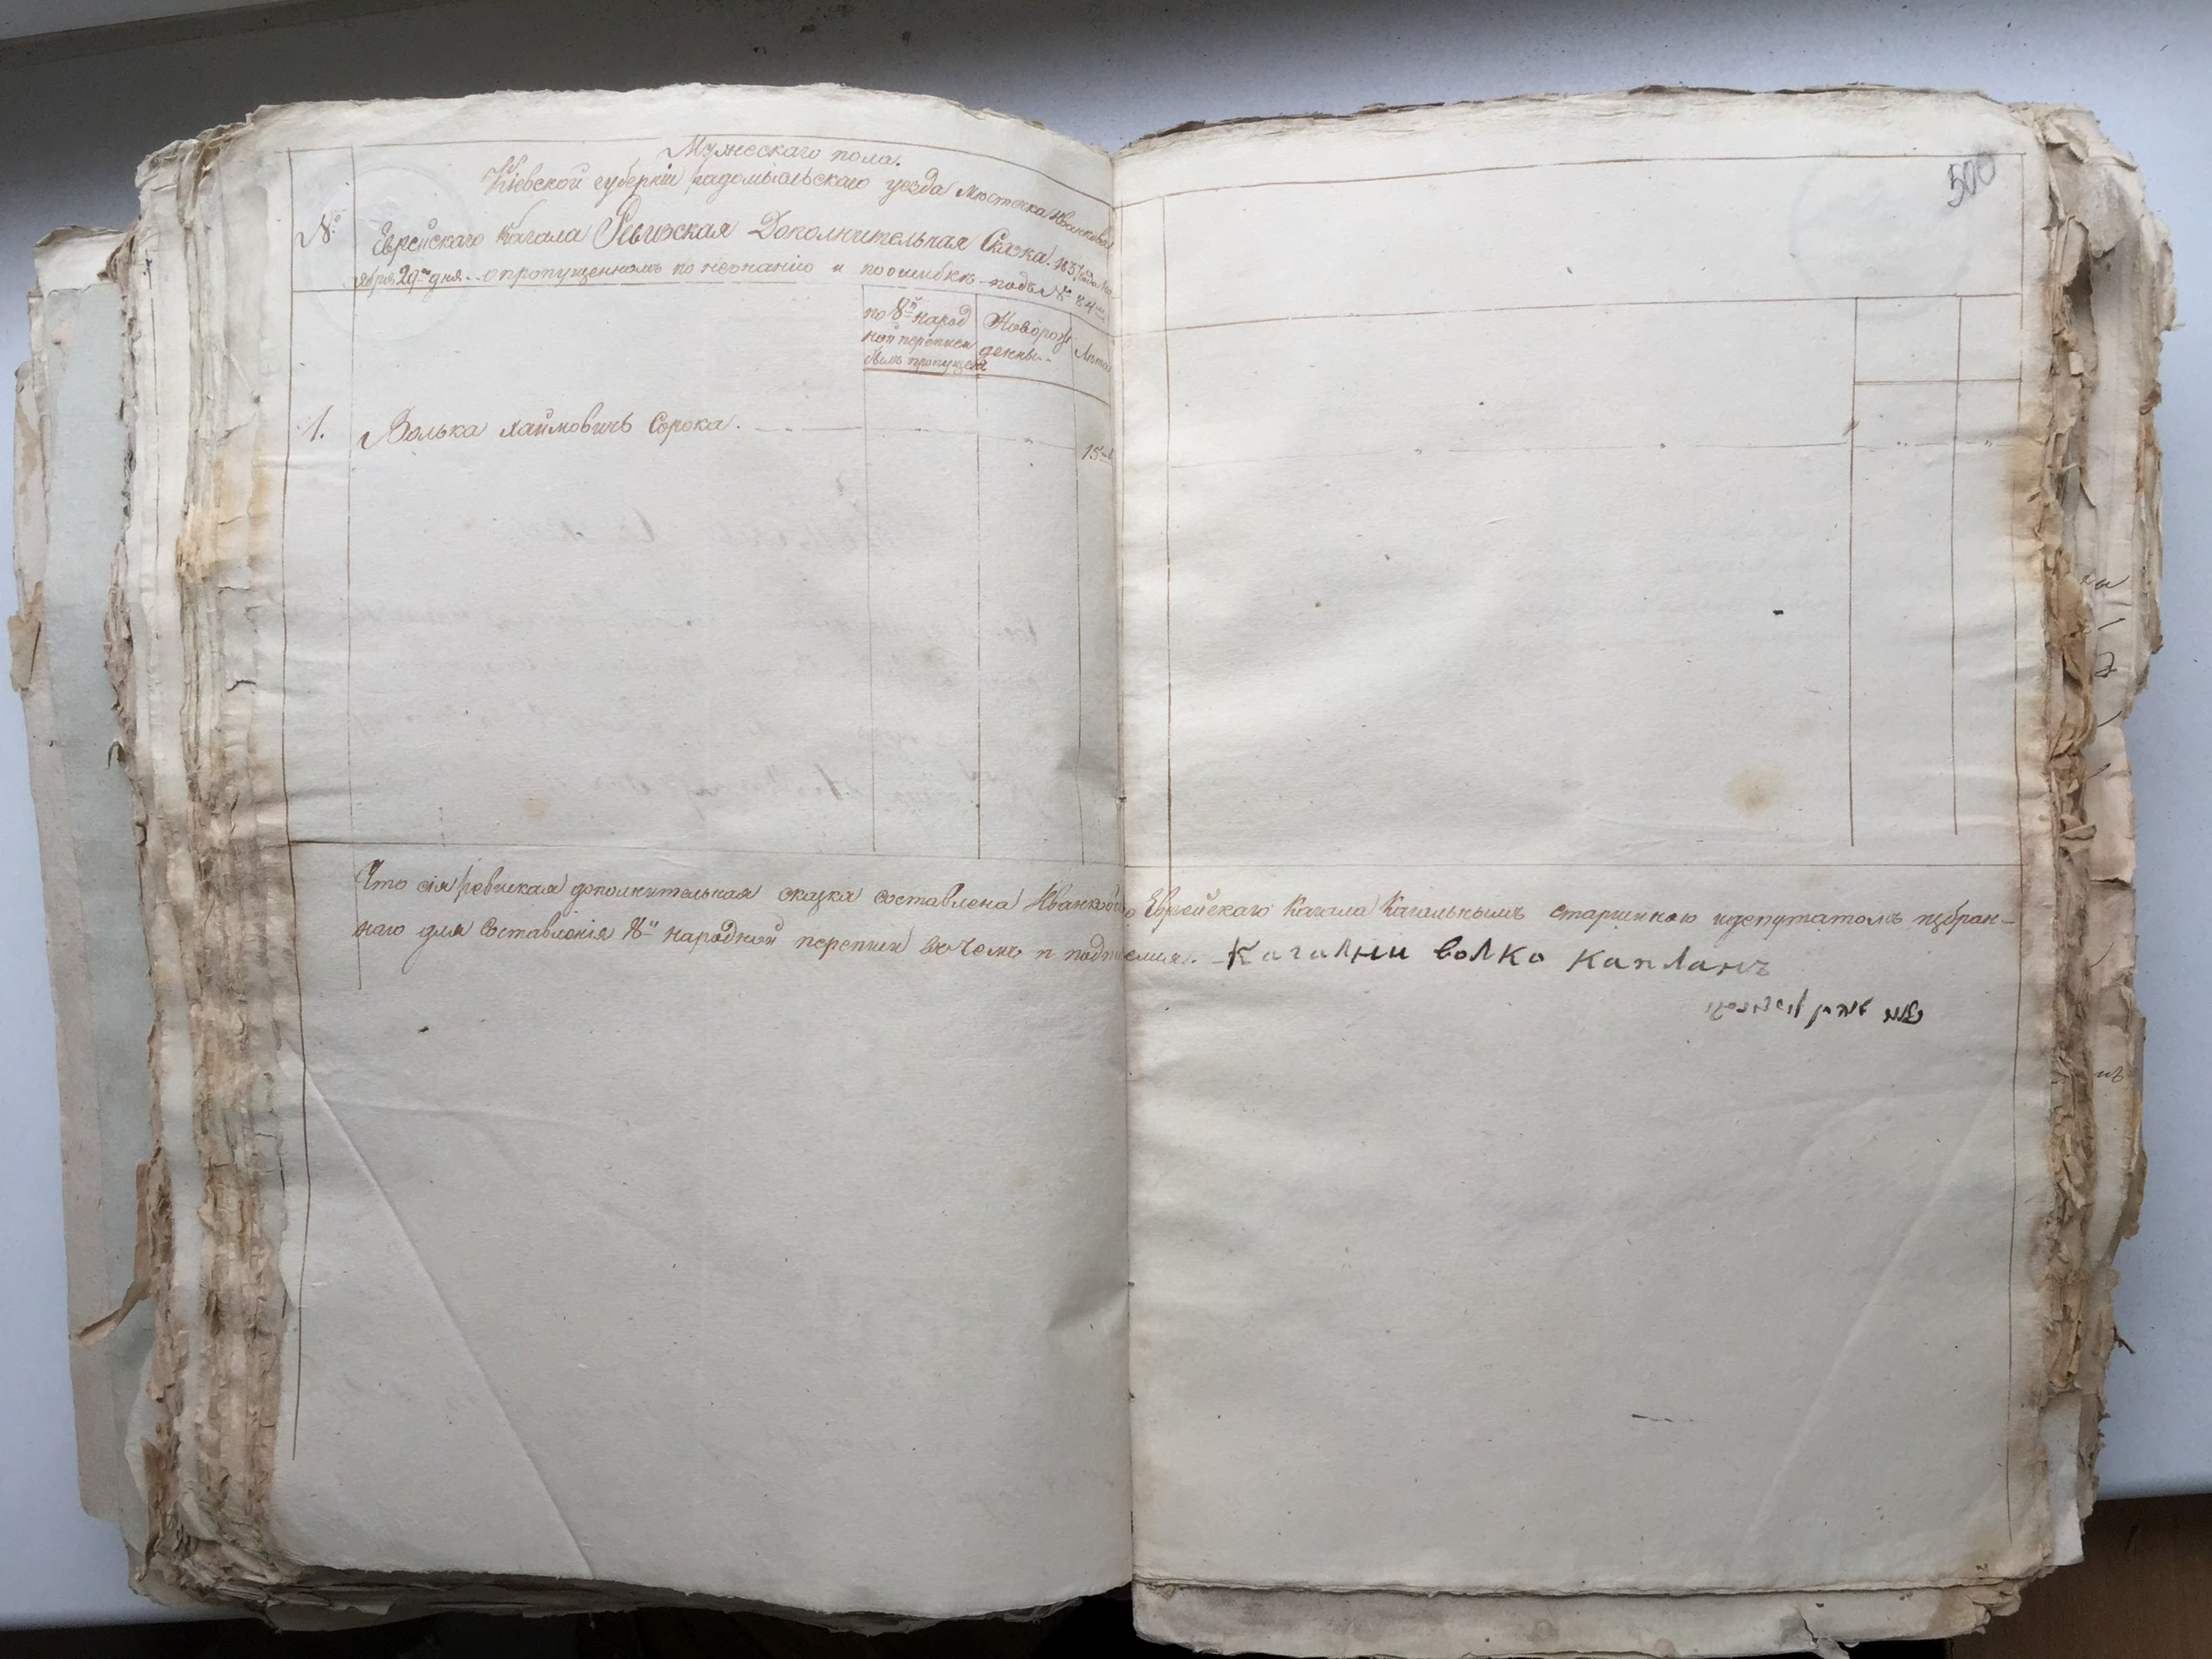 500
Мужескаго пола.
Кіевской губерніи радомысльскаго уезда Местечка Иванкова
№ Еврейскаго Кагала Ревизская Дополнительная Сказка. 183 года
ября 29го дня. о пропущенномъ по незнанію и поошибке подъ №
по 8й народ Новорож Лета
ной переписи денны..
былъ пропущенъ
1. Волька хаимовичъ Сорока. 15
Что сія ревизская дополнительная сказка составлена Иванковскаго Еврейскаго Кагала Кагальнымъ старшиною идепутатомъ избран-
наго для Составленія 8й народной переписи вчемъ и подписался. Кагални волко капланъ